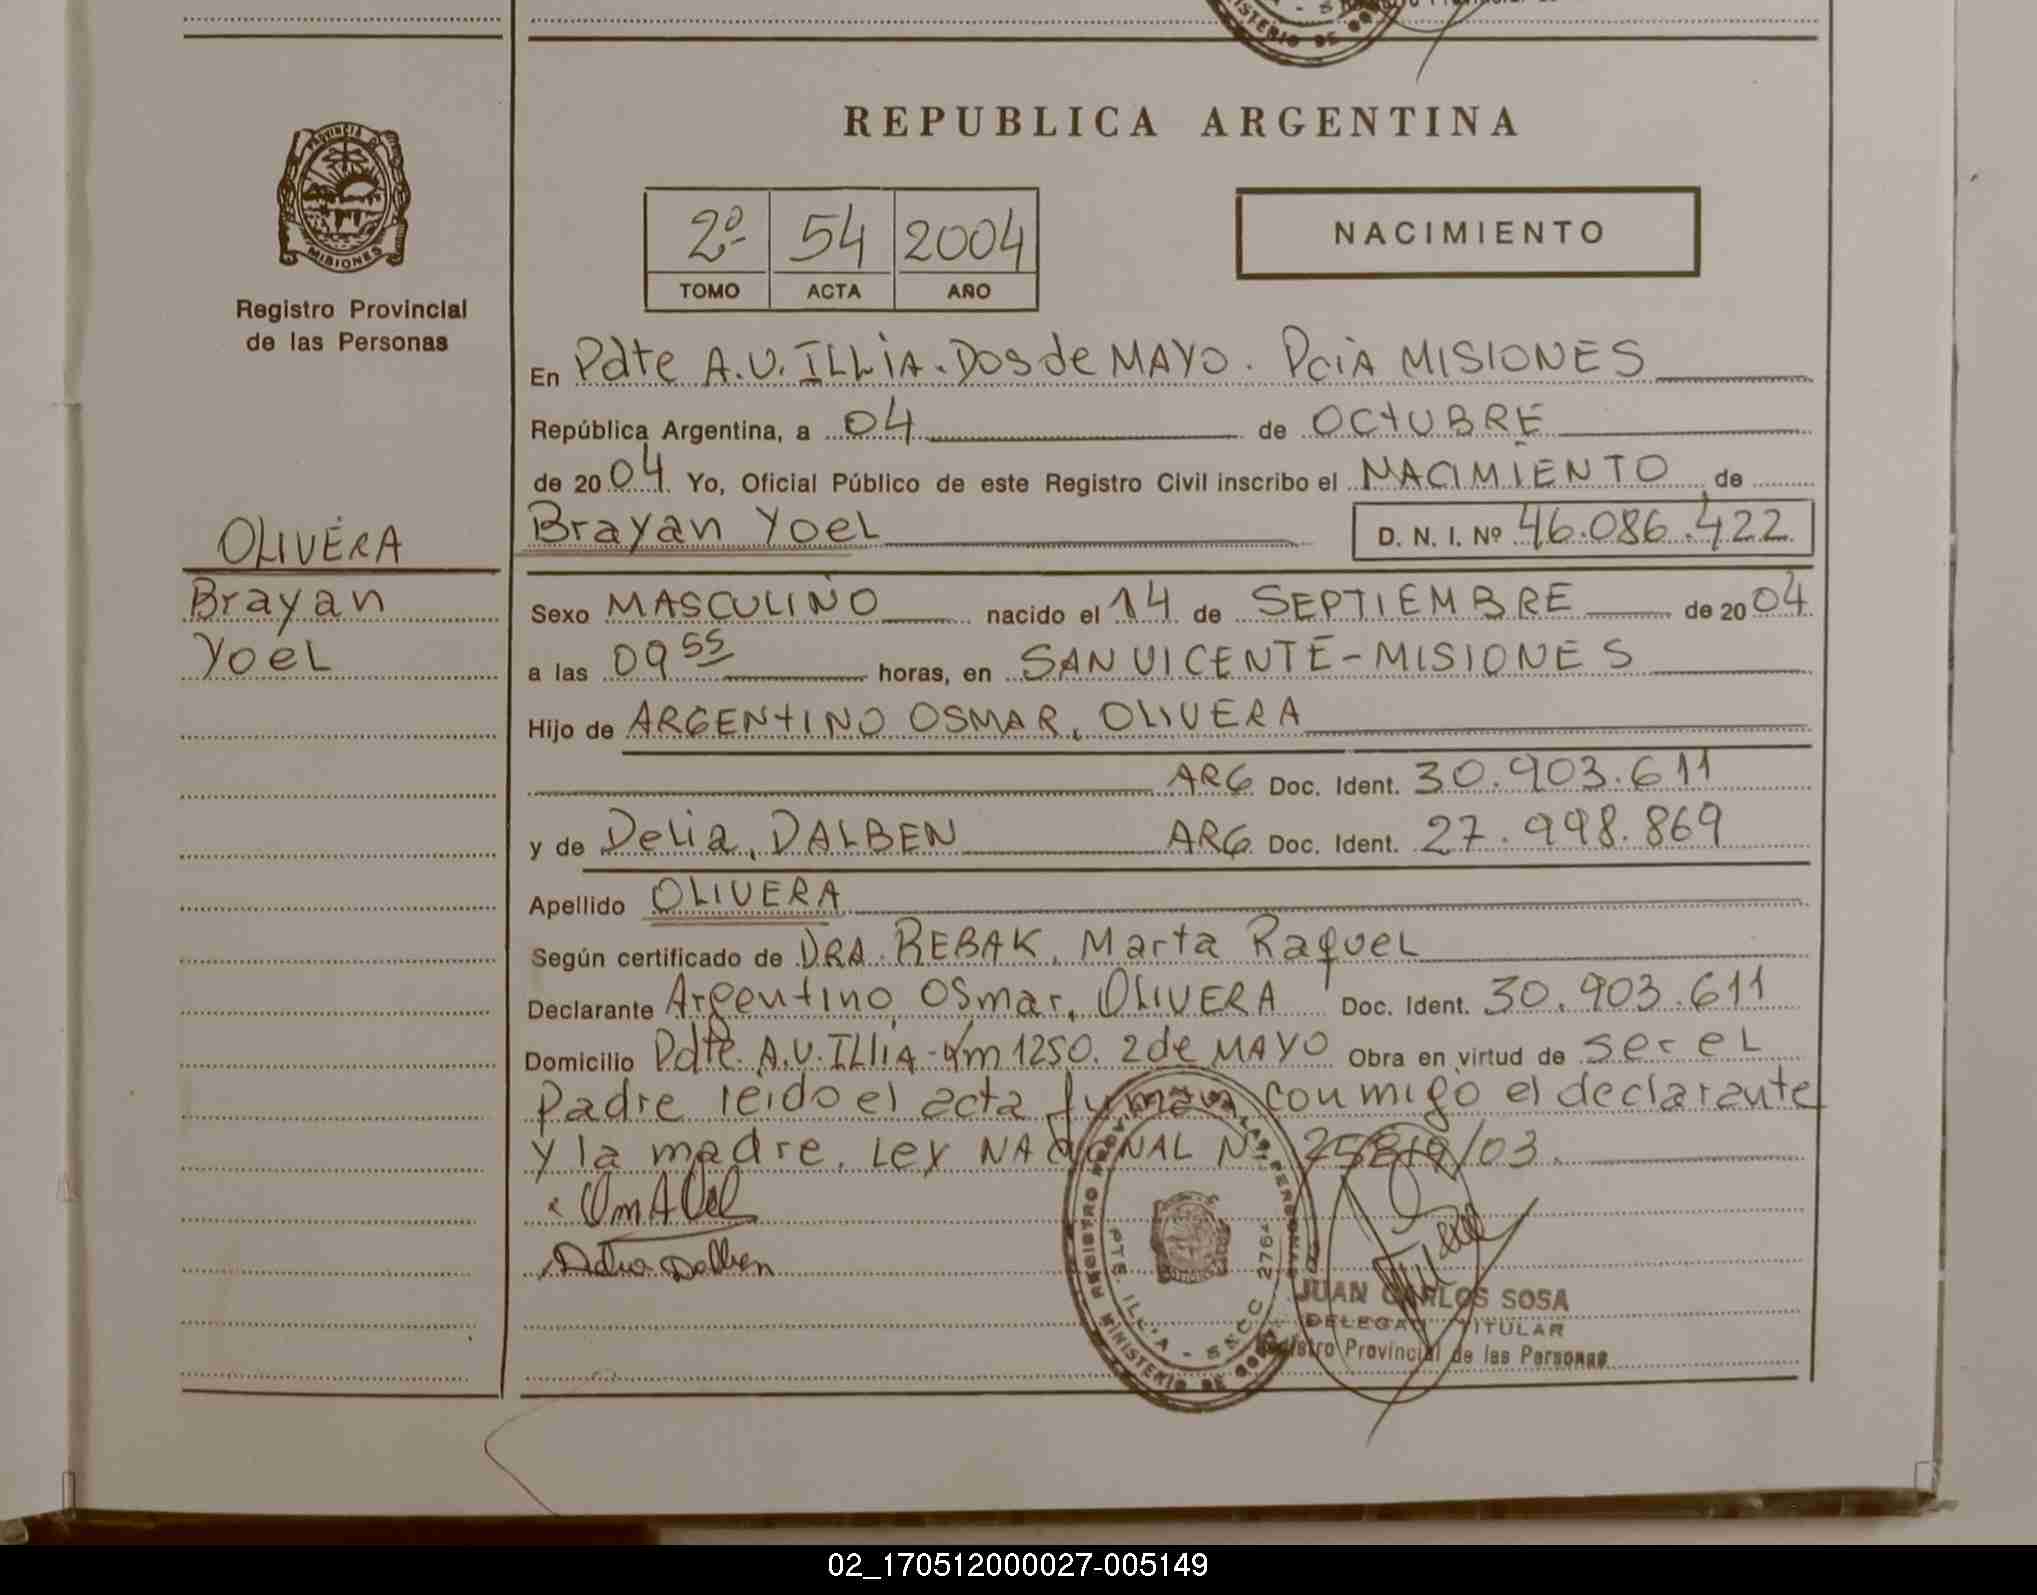 REPUBLICA ARGENTINA
PROVINCIA DE
MISIONES
Registro Provincial
de las Personas
2º 54 2004
TOMO ACTA AÑO
NACIMIENTO
En Pdte A.U. ILLIA. Dos de MAYO. PciA MISIONES
República Argentina, a 04 de OCTUBRE
de 2004 Yo, Oficial Público de este Registro Civil inscribo el NACIMIENTO de
Brayan Yoel D. N. I. Nº 46.086.422
OLIVERA
Brayan
Yoel
Sexo MASCULINO nacido el 14 de SEPTIEMBRE de 2004
a las 09 55 horas, en SAN VICENTE - MISIONES
Hijo de ARGENTINO OSMAR, OLIVERA
ARG Doc. Ident. 30.903.611
y de Delia, DALBEN ARG Doc. Ident. 27.998.869
Apellido OLIVERA
Según certificado de DRA. REBAK, Marta Raquel
Declarante Argentino Osmar, OLIVERA Doc. Ident. 30.903.611
Domicilio Pdte. A.U. ILLIA - Km 1250. 2 de MAYO Obra en virtud de ser el
Padre leido el acta firman conmigo el declarante
y la madre. Ley NACIONAL Nº 25819/03.
REGISTRO PROVINCIAL DE LAS PERSONAS
PTE. ILLIA - SECC 2764
MINISTERIO DE GOB
JUAN CARLOS SOSA
DELEGADO TITULAR
Registro Provincial de las Personas
02_170512000027-005149